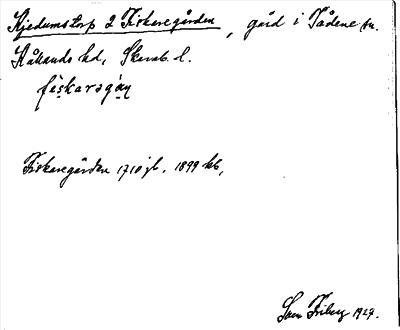 Kjedumstorp 2 Fiskaregården, gård i Tådene sn.
Kållands hd, Skarab. l.
fiskaragån
Fiskaregården 1710 jb, 1899 kb,
Sven Friberg 1927.